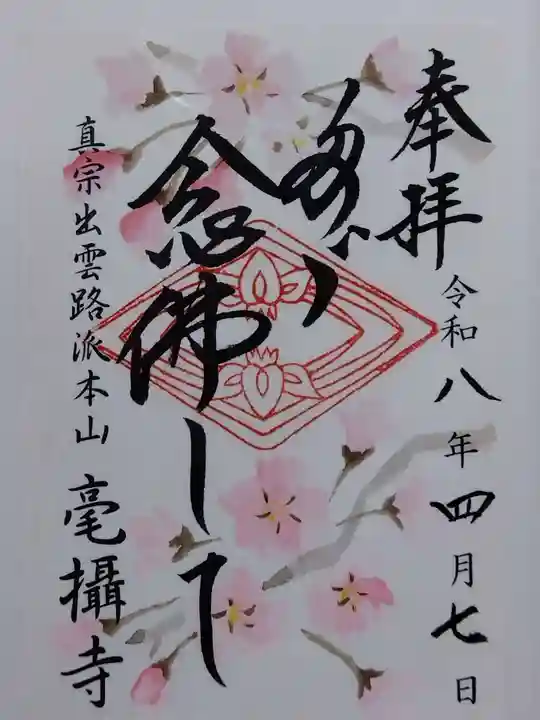 奉拝
令和八年四月七日
多ゞ
念佛して
真宗出雲路派本山 毫攝寺